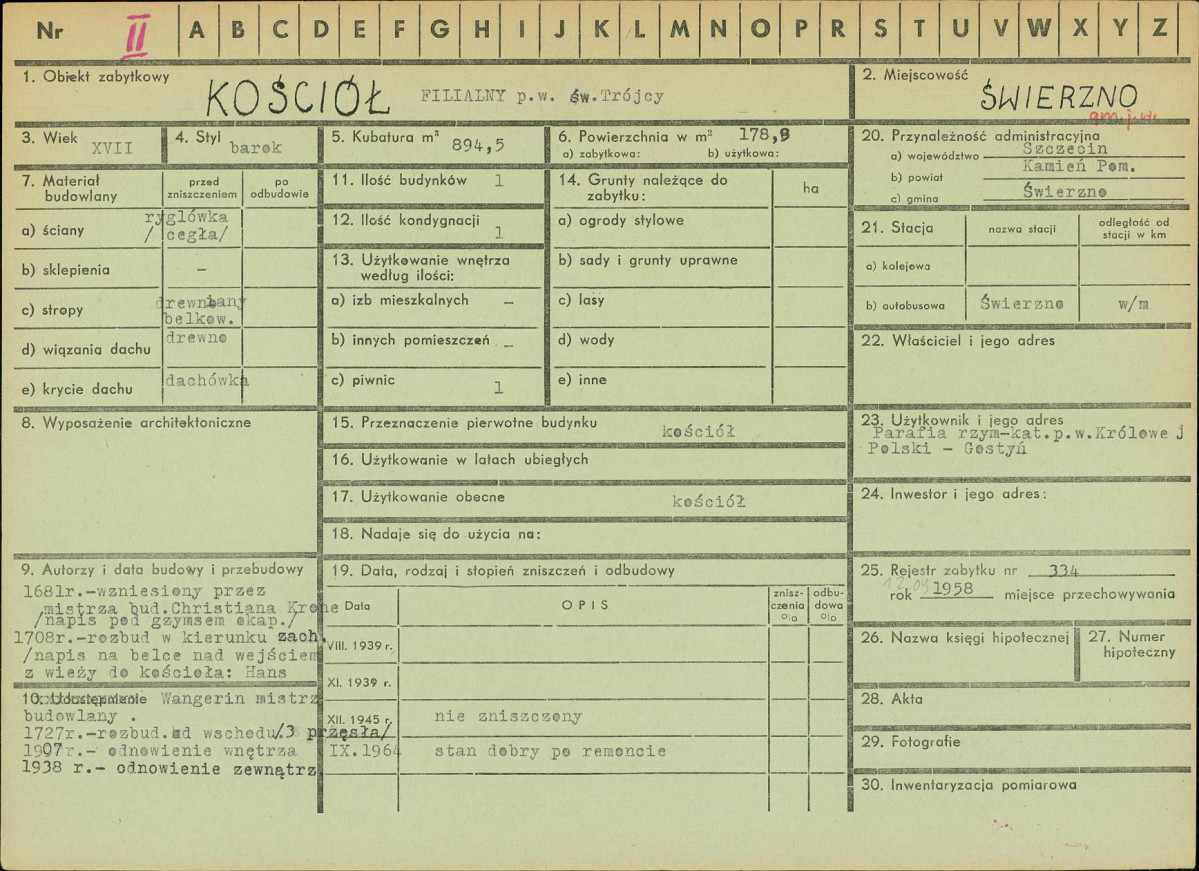 Nr II A B C D E F G H I J K L M N O P R S T U V W X Y Z
1. Obiekt zabytkowy
KOŚCIÓŁ FILIALNY p.w. św.Trójcy
2. Miejscowość
ŚWIERZNO
gm.j.w.
3. Wiek XVII
4. Styl barok
5. Kubatura m³ 894,5
6. Powierzchnia w m² 178,9
a) zabytkowa: b) użytkowa:
7. Materiał budowlany
przed zniszczeniem
po odbudowie
a) ściany ryglówka
/cegła/
b) sklepienia –
c) stropy drewniany
belkow.
d) wiązania dachu drewno
e) krycie dachu dachówka
8. Wyposażenie architektoniczne
9. Autorzy i data budowy i przebudowy
1681r.-wzniesiony przez
mistrza bud.Christiana Krone
/napis pod gzymsem okap./
1708r.-rozbud w kierunku zach.
/napis na belce nad wejściem
z wieży do kościoła: Hans
10. Udostępnienie Wangerin mistrz
budowlany .
1727r.-rozbud.od wschodu/3 przęsła/
1907r.- odnowienie wnętrza
1938 r.- odnowienie zewnątrz
11. Ilość budynków 1
12. Ilość kondygnacji 1
13. Użytkowanie wnętrza
według ilości:
a) izb mieszkalnych –
b) innych pomieszczeń –
c) piwnic 1
14. Grunty należące do
zabytku:
ha
a) ogrody stylowe
b) sady i grunty uprawne
c) lasy
d) wody
e) inne
15. Przeznaczenie pierwotne budynku kościół
16. Użytkowanie w latach ubiegłych
17. Użytkowanie obecne kościół
18. Nadaje się do użycia na:
19. Data, rodzaj i stopień zniszczeń i odbudowy
Data
OPIS
znisz-
czenia
o/o
odbu-
dowa
o/o
VIII. 1939 r.
XI. 1939 r.
XII. 1945 r. nie zniszczony
IX.1964 stan dobry po remoncie
20. Przynależność administracyjna
a) województwo Szczecin
b) powiat Kamień Pom.
c) gmina Świerzno
21. Stacja
nazwa stacji
odległość od
stacji w km
a) kolejowa
b) autobusowa Świerzno w/m
22. Właściciel i jego adres
23. Użytkownik i jego adres
Parafia rzym-kat.p.w.Królowe j
Polski – Gostyń
24. Inwestor i jego adres:
25. Rejestr zabytku nr 334
12.09
rok 1958 miejsce przechowywania
26. Nazwa księgi hipotecznej
27. Numer
hipoteczny
28. Akta
29. Fotografie
30. Inwentaryzacja pomiarowa